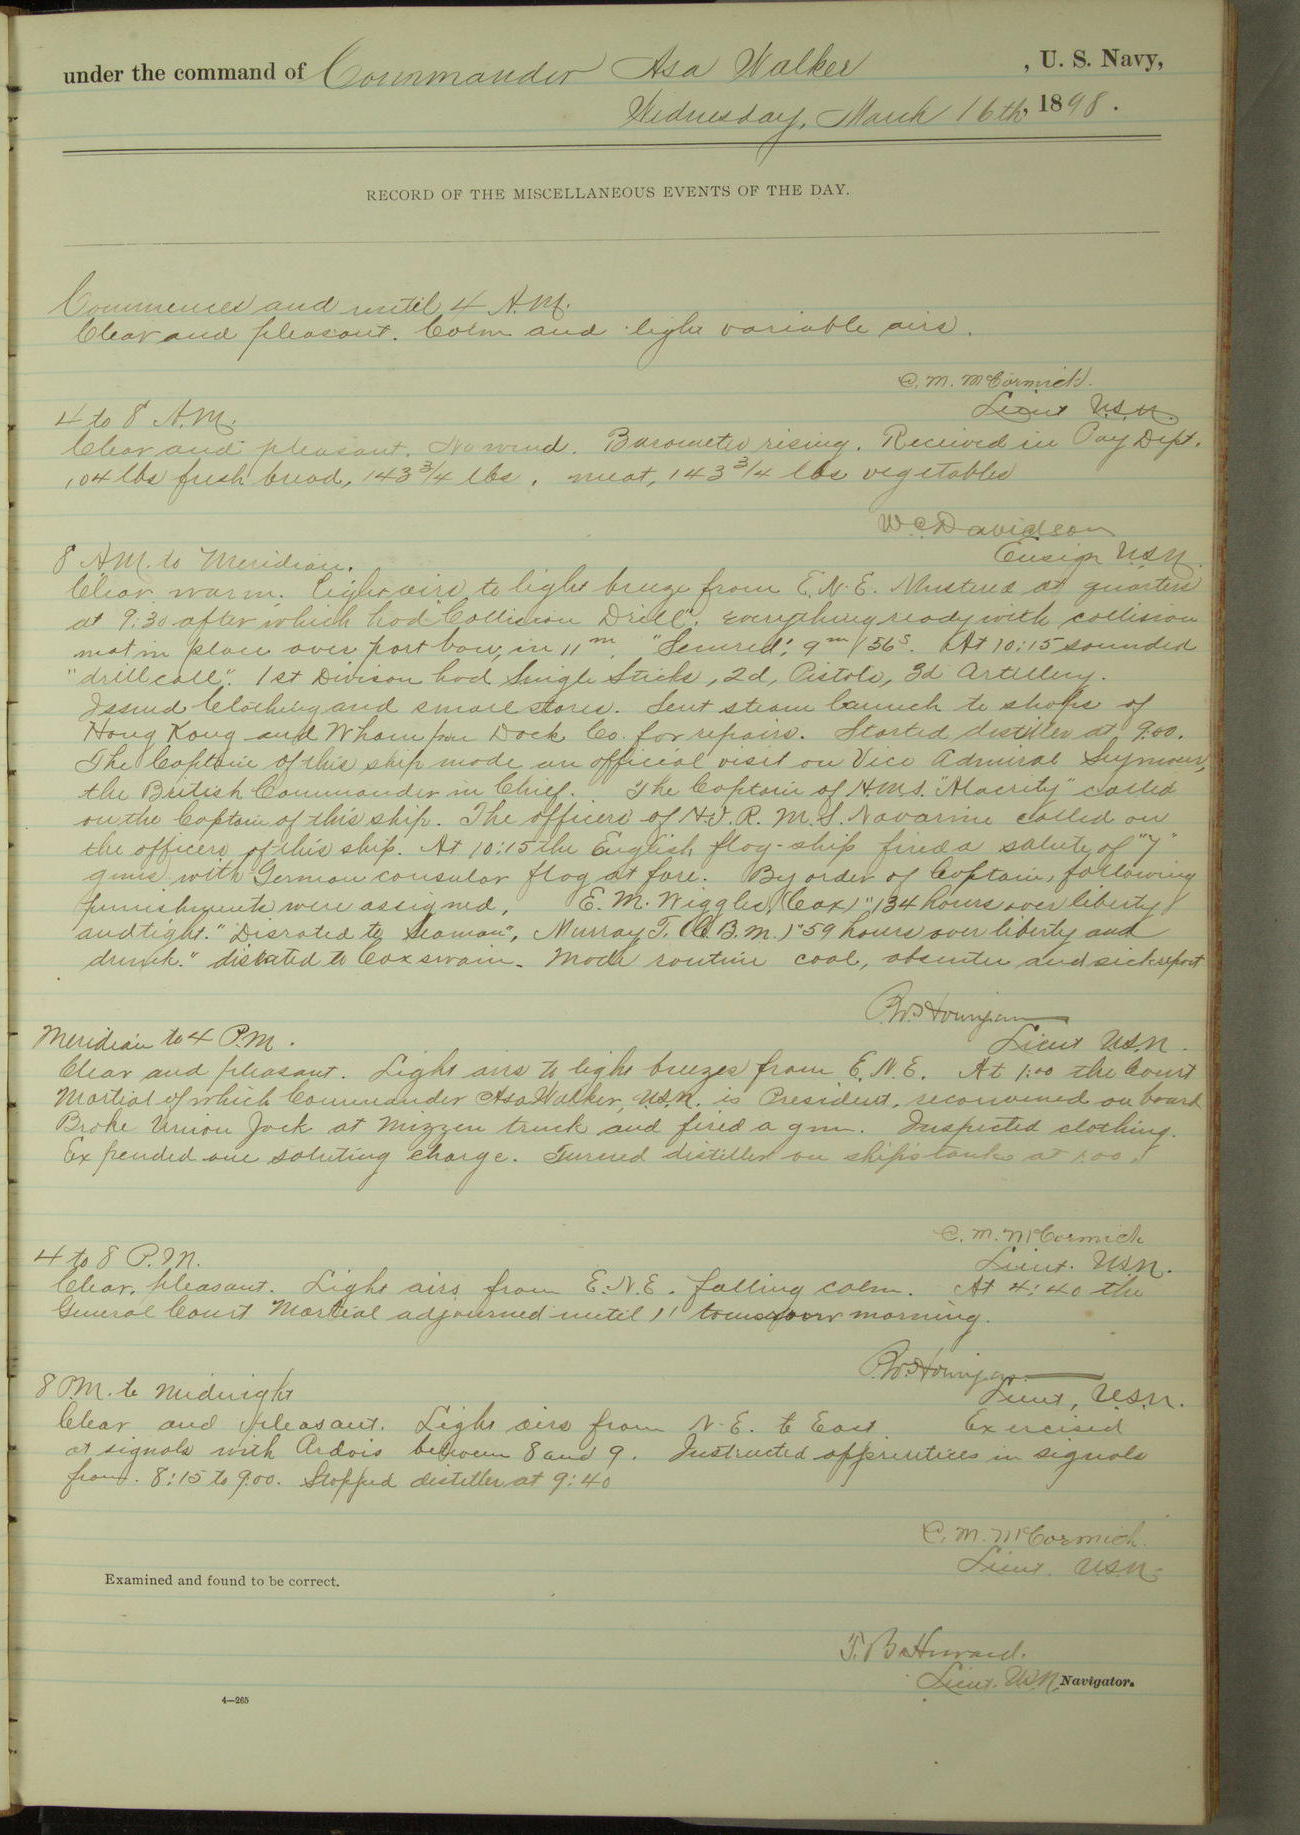 under the command of Commander Asa Walker , U. S. Navy,
Wednesday, March 16th, 1898.
RECORD OF THE MISCELLANEOUS EVENTS OF THE DAY.
Commences and until 4 A.M.
Clear and pleasant. Calm and light variable airs.
C. M. McCormick.
Lieut U.S.N.
4 to 8 A.M.
Clear and pleasant. No wind. Barometer rising. Received in Pay Dept.
104 lbs fresh bread, 143 3/4 lbs. meat, 143 3/4 lbs vegetables
W C Davidson
Ensign U.S.N.
8 A.M. to Meridian.
Clear warm. Light airs to light breeze from E.N.E. Mustered at quarters
at 9:30 after which had "Collision Drill". everything ready with collision
mat in place over port bow, in 11m. "Secured", 9m 56s. At 10:15 sounded
"drill call". 1st Divison had Single Sticks, 2d, Pistols, 3d Artillery.
Issued Clothing and small stores. Sent steam launch to shops of
Hong Kong and Whampoa Dock Co. for repairs. Started distiller at 9.00.
The Captain of this ship made an official visit on Vice Admiral Seymour,
the British Commander in Chief. The Captain of H.M.S. "Alacrity" called
on the Captain of this ship. The officers of H.I.R.M.S. Navarine called on
the officers of this ship. At 10:15 the English flag-ship fired a salute of "7"
guns with German consular flag at fore. By order of Captain, following
punishments were assigned, E. M. Wiggles, (Cox) "134 hours over liberty
and tight." Disrated to seaman", Murray, T. (C.B.M.) "59 hours over liberty and
drunk." disrated to Coxswain. Made routine coal, absentee and sick report
P.W. Hourigan
Lieut U.S.N.
Meridian to 4 P.M.
Clear and pleasant. Light airs to light breezes from E.N.E. At 1:00 the Court
Martial of which Commander Asa Walker, U.S.N. is President, reconvened on board
Broke Union Jack at mizzen truck and fired a gun. Inspected clothing.
Expended one saluting charge. Turned distiller on ship's tanks at 1.00.
C. M. McCormick
Lieut. U.S.N.
4 to 8 P.M.
Clear, pleasant. Light airs from E.N.E. falling calm. At 4:40 the
General Court Martial adjourned until 11 tomorrow morning.
P.W. Hourigan
Lieut, U.S.N.
8 P.M. to Midnight
Clear and pleasant. Light airs from N-E. to East. Exercised
at signals with Ardois between 8 and 9. Instructed apprentices in signals
from. 8:15 to 9:00. Stopped distiller at 9:40
C. M. McCormick.
Lieut. U.S.N.
Examined and found to be correct.
T. B. Howard.
Lieut. U.S.N. Navigator.
4—265